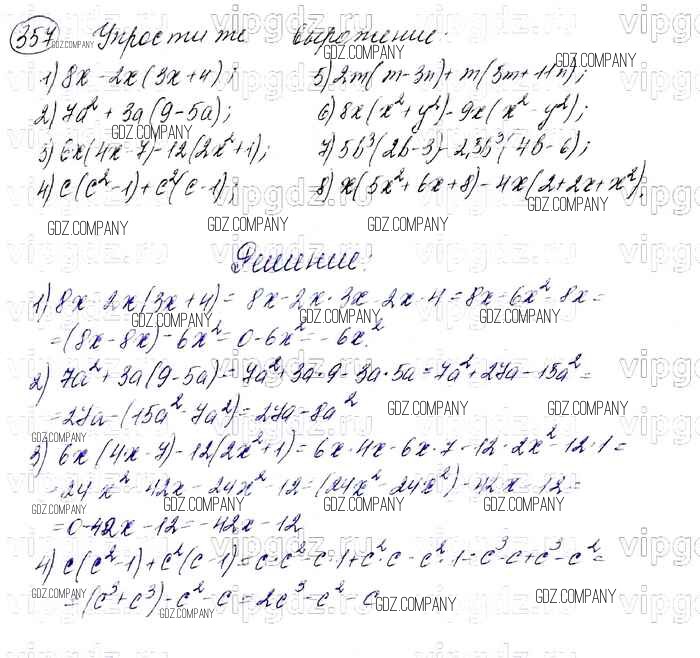 357 Упростите выражение:
1) 8x - 2x(3x+4); 5) 2m(m-3n)+m(5m+11n);
2) 7a²+3a(9-5a); 6) 8x(x²+y²)-9x(x²-y²);
3) 6x(4x-7)-12(2x²+1); 7) 5b³(2b-3)-2,5b³(4b-6);
4) c(c²-1)+c²(c-1); 8) x(5x²+6x+8)-4x(2+2x+x²).
Решение:
1) 8x-2x(3x+4)= 8x-2x·3x-2x·4=8x-6x²-8x=
=(8x-8x)-6x²=0-6x²=-6x².
2) 7a²+3a(9-5a)=7a²+3a·9-3a·5a=7a²+27a-15a²=
=27a-(15a²-7a²)=27a-8a²
3) 6x(4x-7)-12(2x²+1)=6x·4x-6x·7-12·2x²-12·1=
=24x²-42x-24x²-12=(24x²-24x²)-42x-12=
=0-42x-12=-42x-12
4) c(c²-1)+c²(c-1)=c·c²-c·1+c²·c-c²·1=c³-c+c³-c²=
=(c³+c³)-c²-c=2c³-c²-c
GDZ.COMPANY
vipgdz.ru